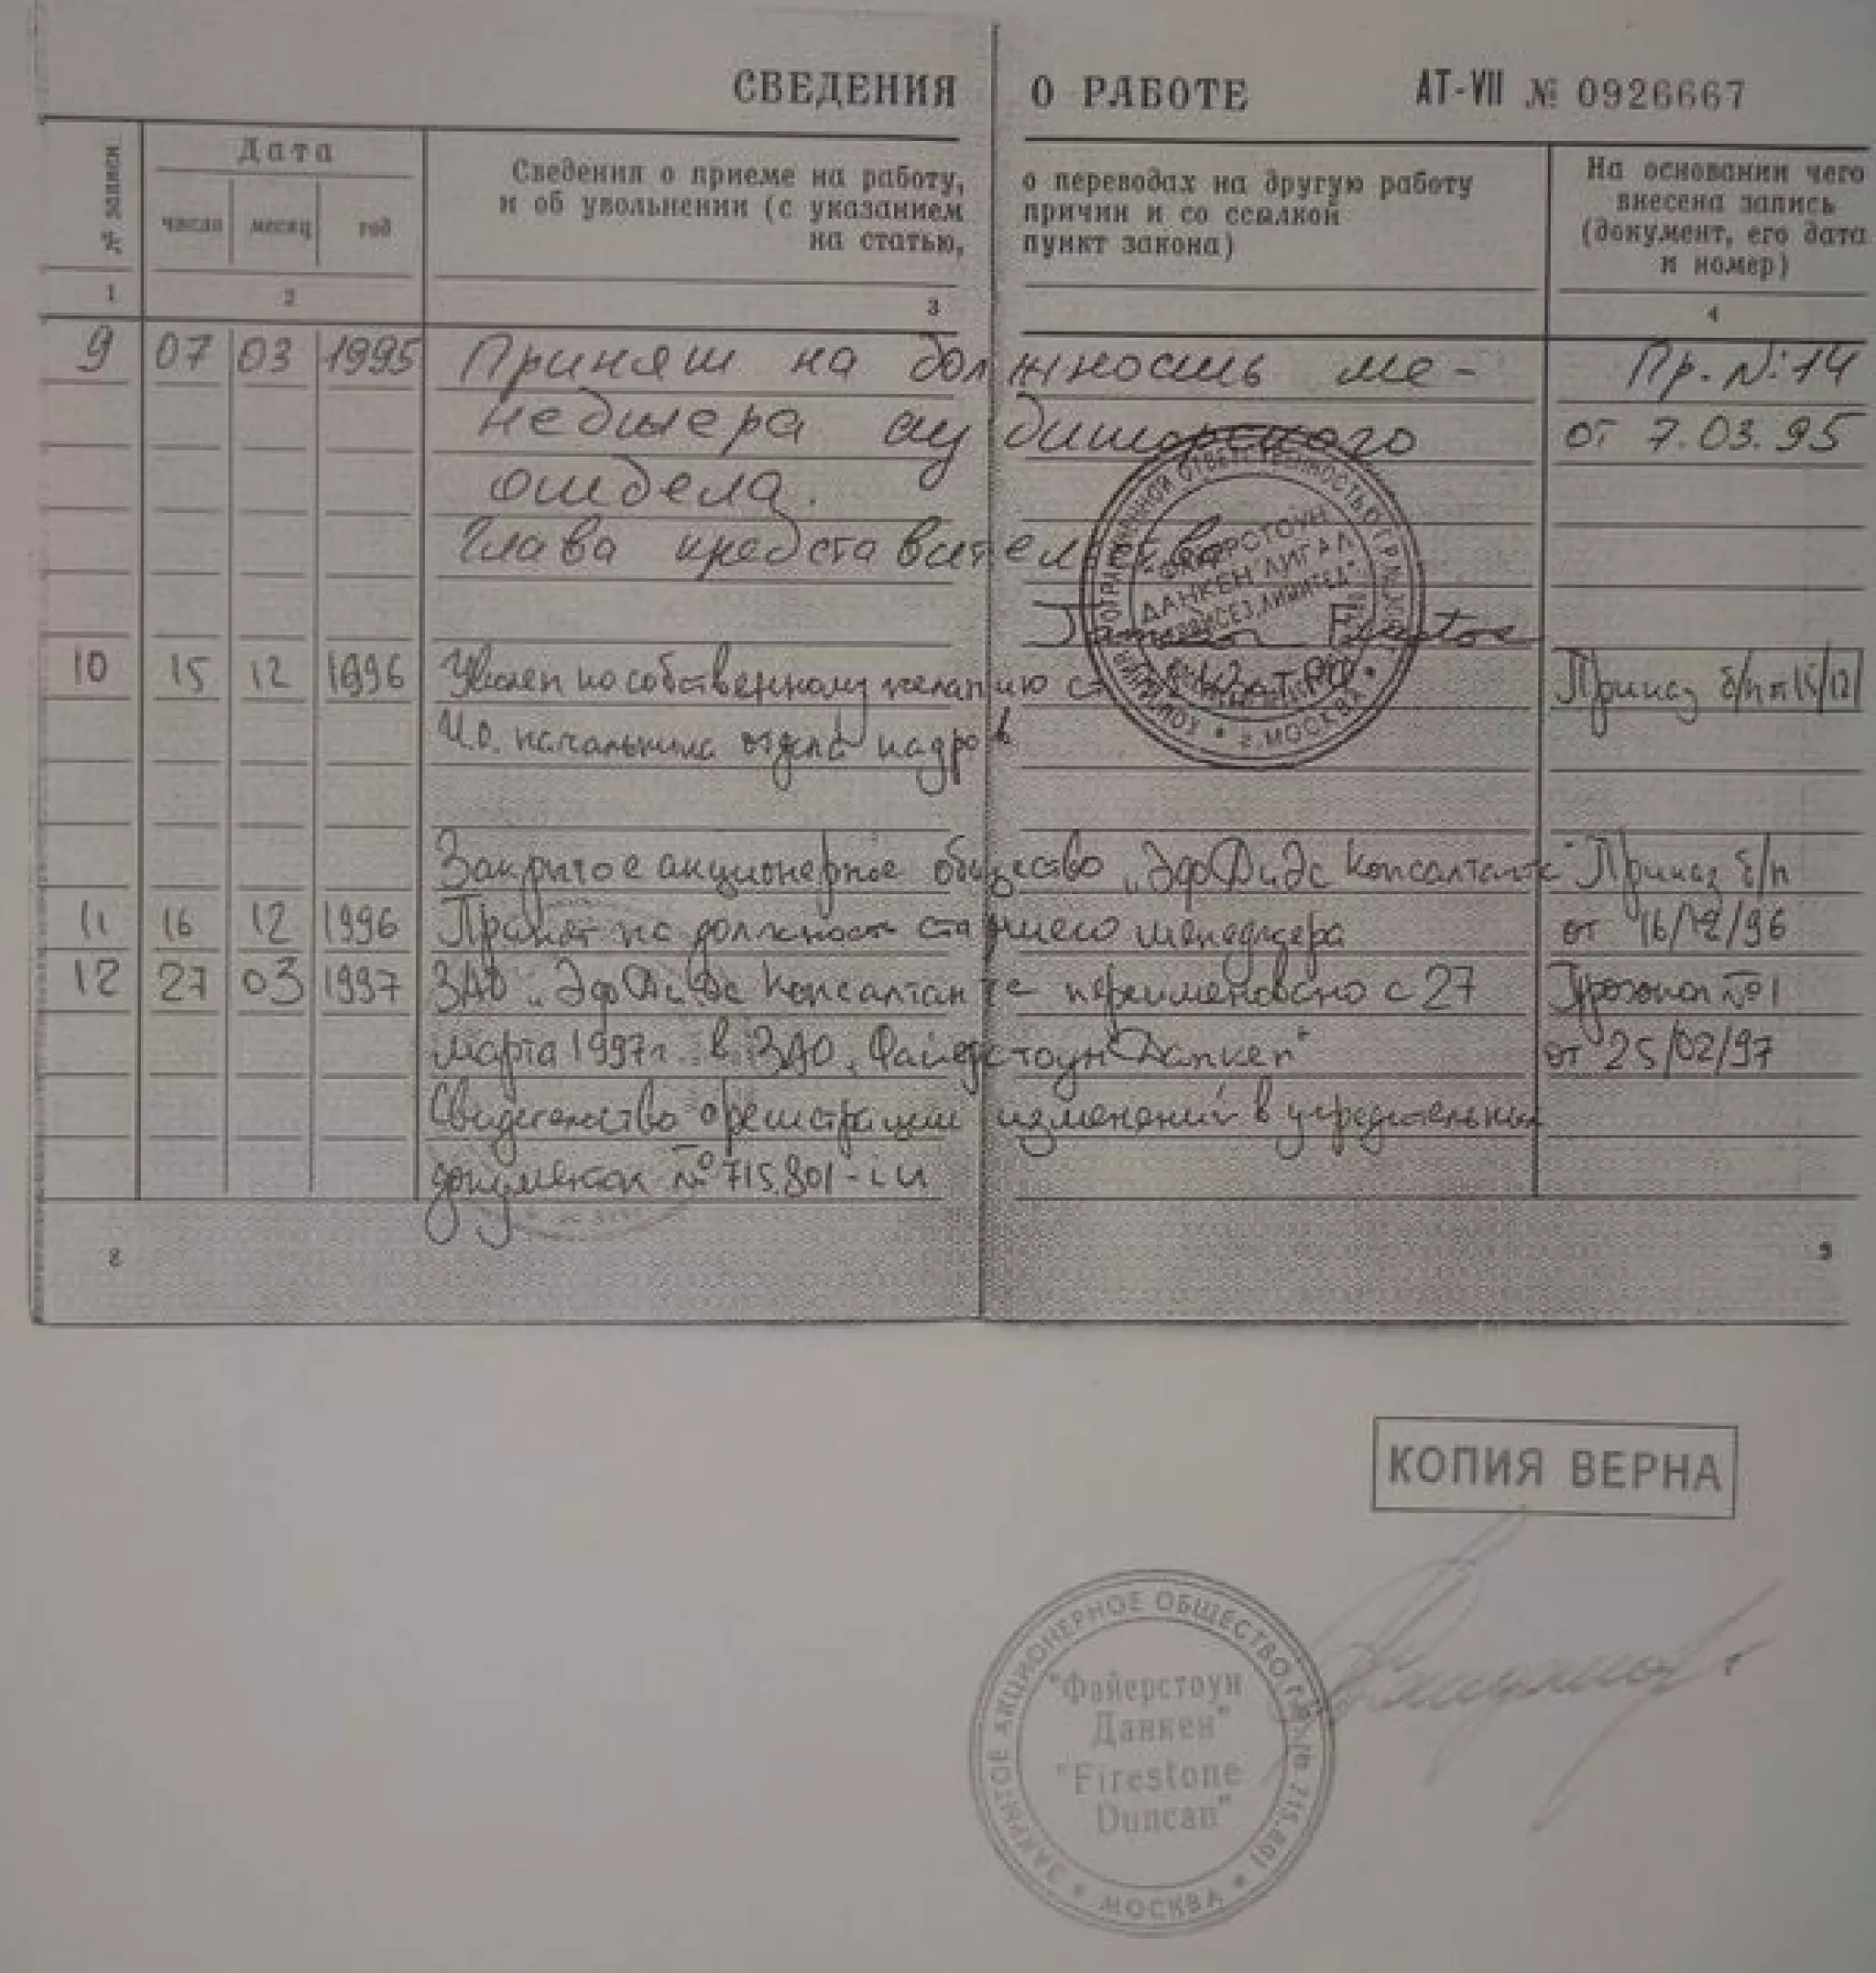 СВЕДЕНИЯ О РАБОТЕ АТ-VII № 0926667
№ записи
Дата
число месяц год
Сведения о приеме на работу, о переводах на другую работу
и об увольнении (с указанием причин и со ссылкой
на статью, пункт закона)
На основании чего
внесена запись
(документ, его дата
и номер)
1 2 3 4
9 07 03 1995 Принят на должность ме- Пр. №14
неджера аудиторского от 7.03.95
отдела.
Глава представительства
10 15 12 1996 Уволен по собственному желанию Приказ б/н 15/12
И.о. начальника отдела кадров
Закрытое акционерное общество „ЭфДиЭс Консалтантс" Приказ б/н
11 16 12 1996 Принят на должность старшего менеджера от 16/12/96
12 27 03 1997 ЗАО „ЭфДиЭс Консалтантс переименовано с 27 Протокол №1
марта 1997г. в ЗАО „Файерстоун Данкен" от 25/02/97
Свидетельство о регистрации изменений в учредительных
документах № 715.801
8 9
КОМПАНИЯ С ОГРАНИЧЕННОЙ ОТВЕТСТВЕННОСТЬЮ
"ФАЙЕРСТОУН
ДАНКЕН ЛИГАЛ
СЕРВИСЕЗ ЛИМИТЕД"
Г. МОСКВА
КОПИЯ ВЕРНА
ЗАКРЫТОЕ АКЦИОНЕРНОЕ ОБЩЕСТВО 715.801
"Файерстоун
Данкен"
"Firestone
Duncan"
* МОСКВА *